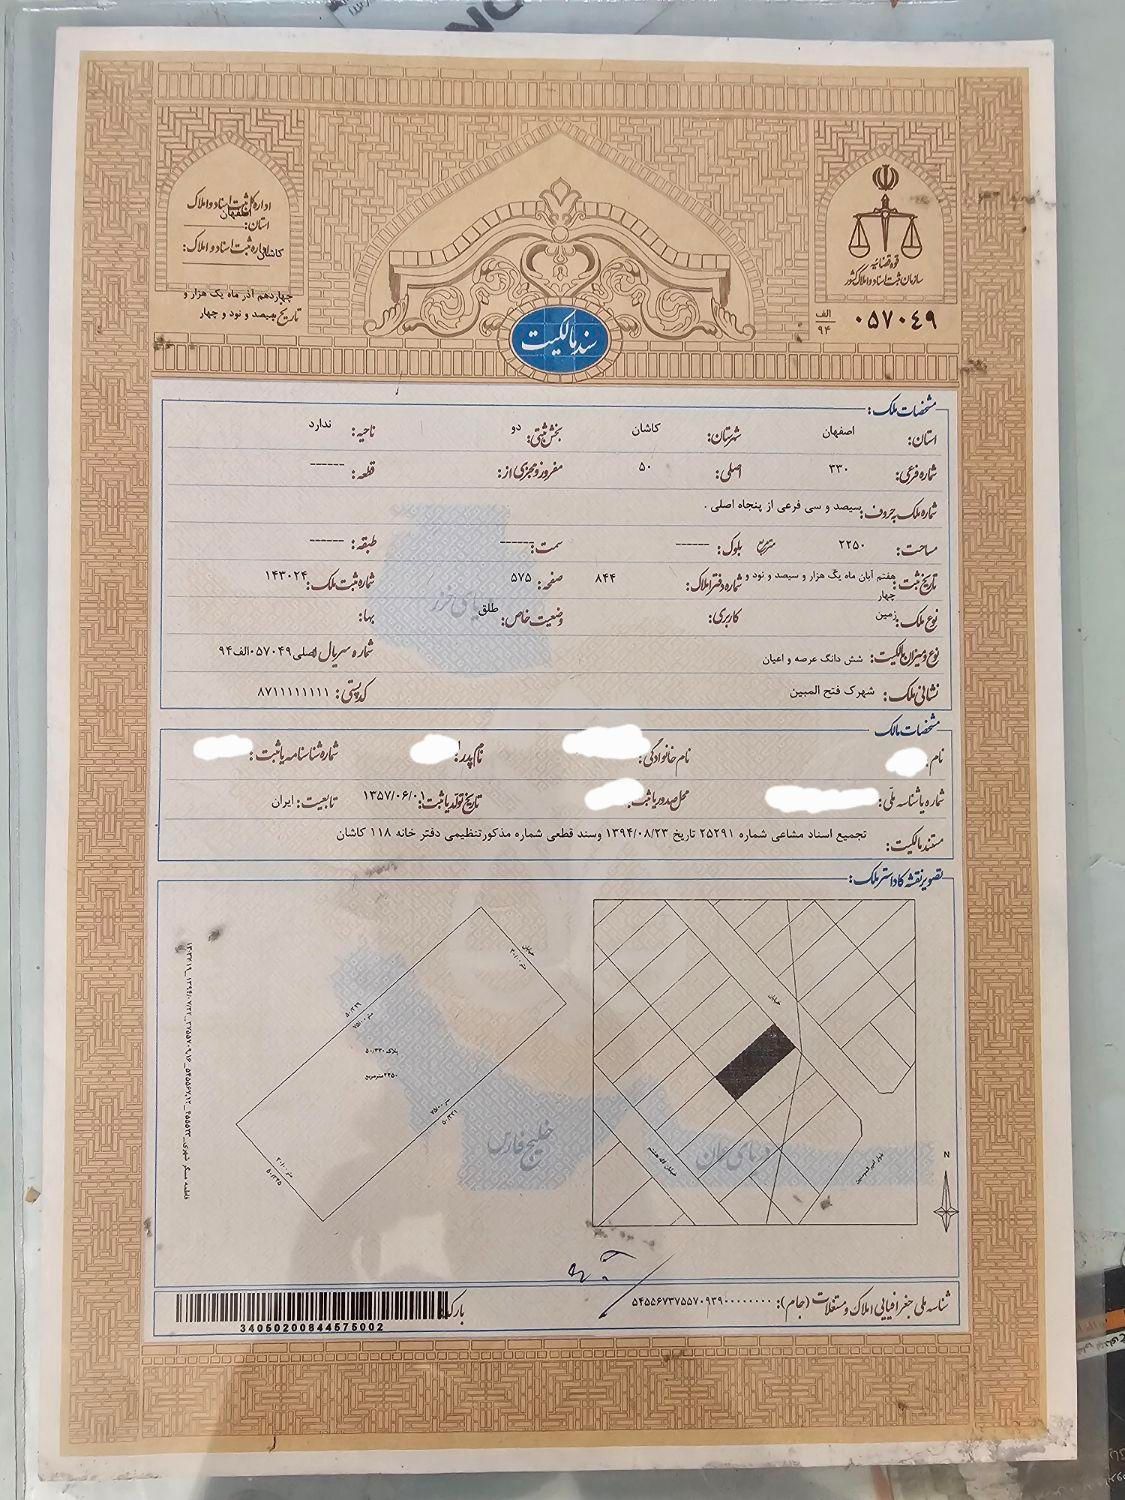 قوه قضائیه
سازمان ثبت اسناد و املاک کشور
۰۵۷۰۴۹ الف ۹۴
اداره کل ثبت اسناد و املاک
استان: اصفهان
اداره ثبت اسناد و املاک: کاشان
تاریخ: چهاردهم آذر ماه یک هزار و سیصد و نود و چهار
سند مالکیت
مشخصات ملک:
استان: اصفهان شهرستان: کاشان بخش ثبتی: دو ناحیه: ندارد
شماره فرعی: ۳۳۰ اصلی: ۵۰ مفروز و مجزی از: قطعه: ------
شماره ملک به حروف: سیصد و سی فرعی از پنجاه اصلی .
مساحت: ۲۲۵۰ متر مربع بلوک: ------ سمت: ------ طبقه: ------
تاریخ ثبت: هفتم آبان ماه یک هزار و سیصد و نود و چهار شماره دفتر املاک: ۸۴۴ صفحه: ۵۷۵ شماره ثبت ملک: ۱۴۳۰۲۴
نوع ملک: زمین کاربری: وضعیت خاص: طلق بهاء:
نوع و میزان مالکیت: شش دانگ عرصه و اعیان شماره سریال اصلی ۰۵۷۰۴۹الف۹۴
نشانی ملک: شهرک فتح المبین کد پستی: ۸۷۱۱۱۱۱۱۱۱
مشخصات مالک
نام: نام خانوادگی: نام پدر: شماره شناسنامه یا ثبت:
شماره یا شناسه ملی: محل صدور یا ثبت: تاریخ تولد یا ثبت: ۱۳۵۷/۰۶/۰۱ تابعیت: ایران
مستند مالکیت: تجمیع اسناد مشاعی شماره ۲۵۲۹۱ تاریخ ۱۳۹۴/۰۸/۲۳ وسند قطعی شماره مذکورتنظیمی دفتر خانه ۱۱۸ کاشان
تصویر نقشه کاداستر ملک:
خیابان
۵۰/۳۲۹
پلاک ۵۰/۳۳۰
۲۲۵۰مترمربع
۵۰/۳۳۱
خیابان
خیابان لاله هشتم
بلوار امیرالمومنین
N
دریای خزر
خلیج فارس
دریای عمان
شناسه ملی جغرافیایی املاک و مستغلات (جام): ۵۴۵۵۶۷۳۷۵۵۷۰۹۳۹۰۰۰۰۰۰۰۰
بارکد:
34050200844575002